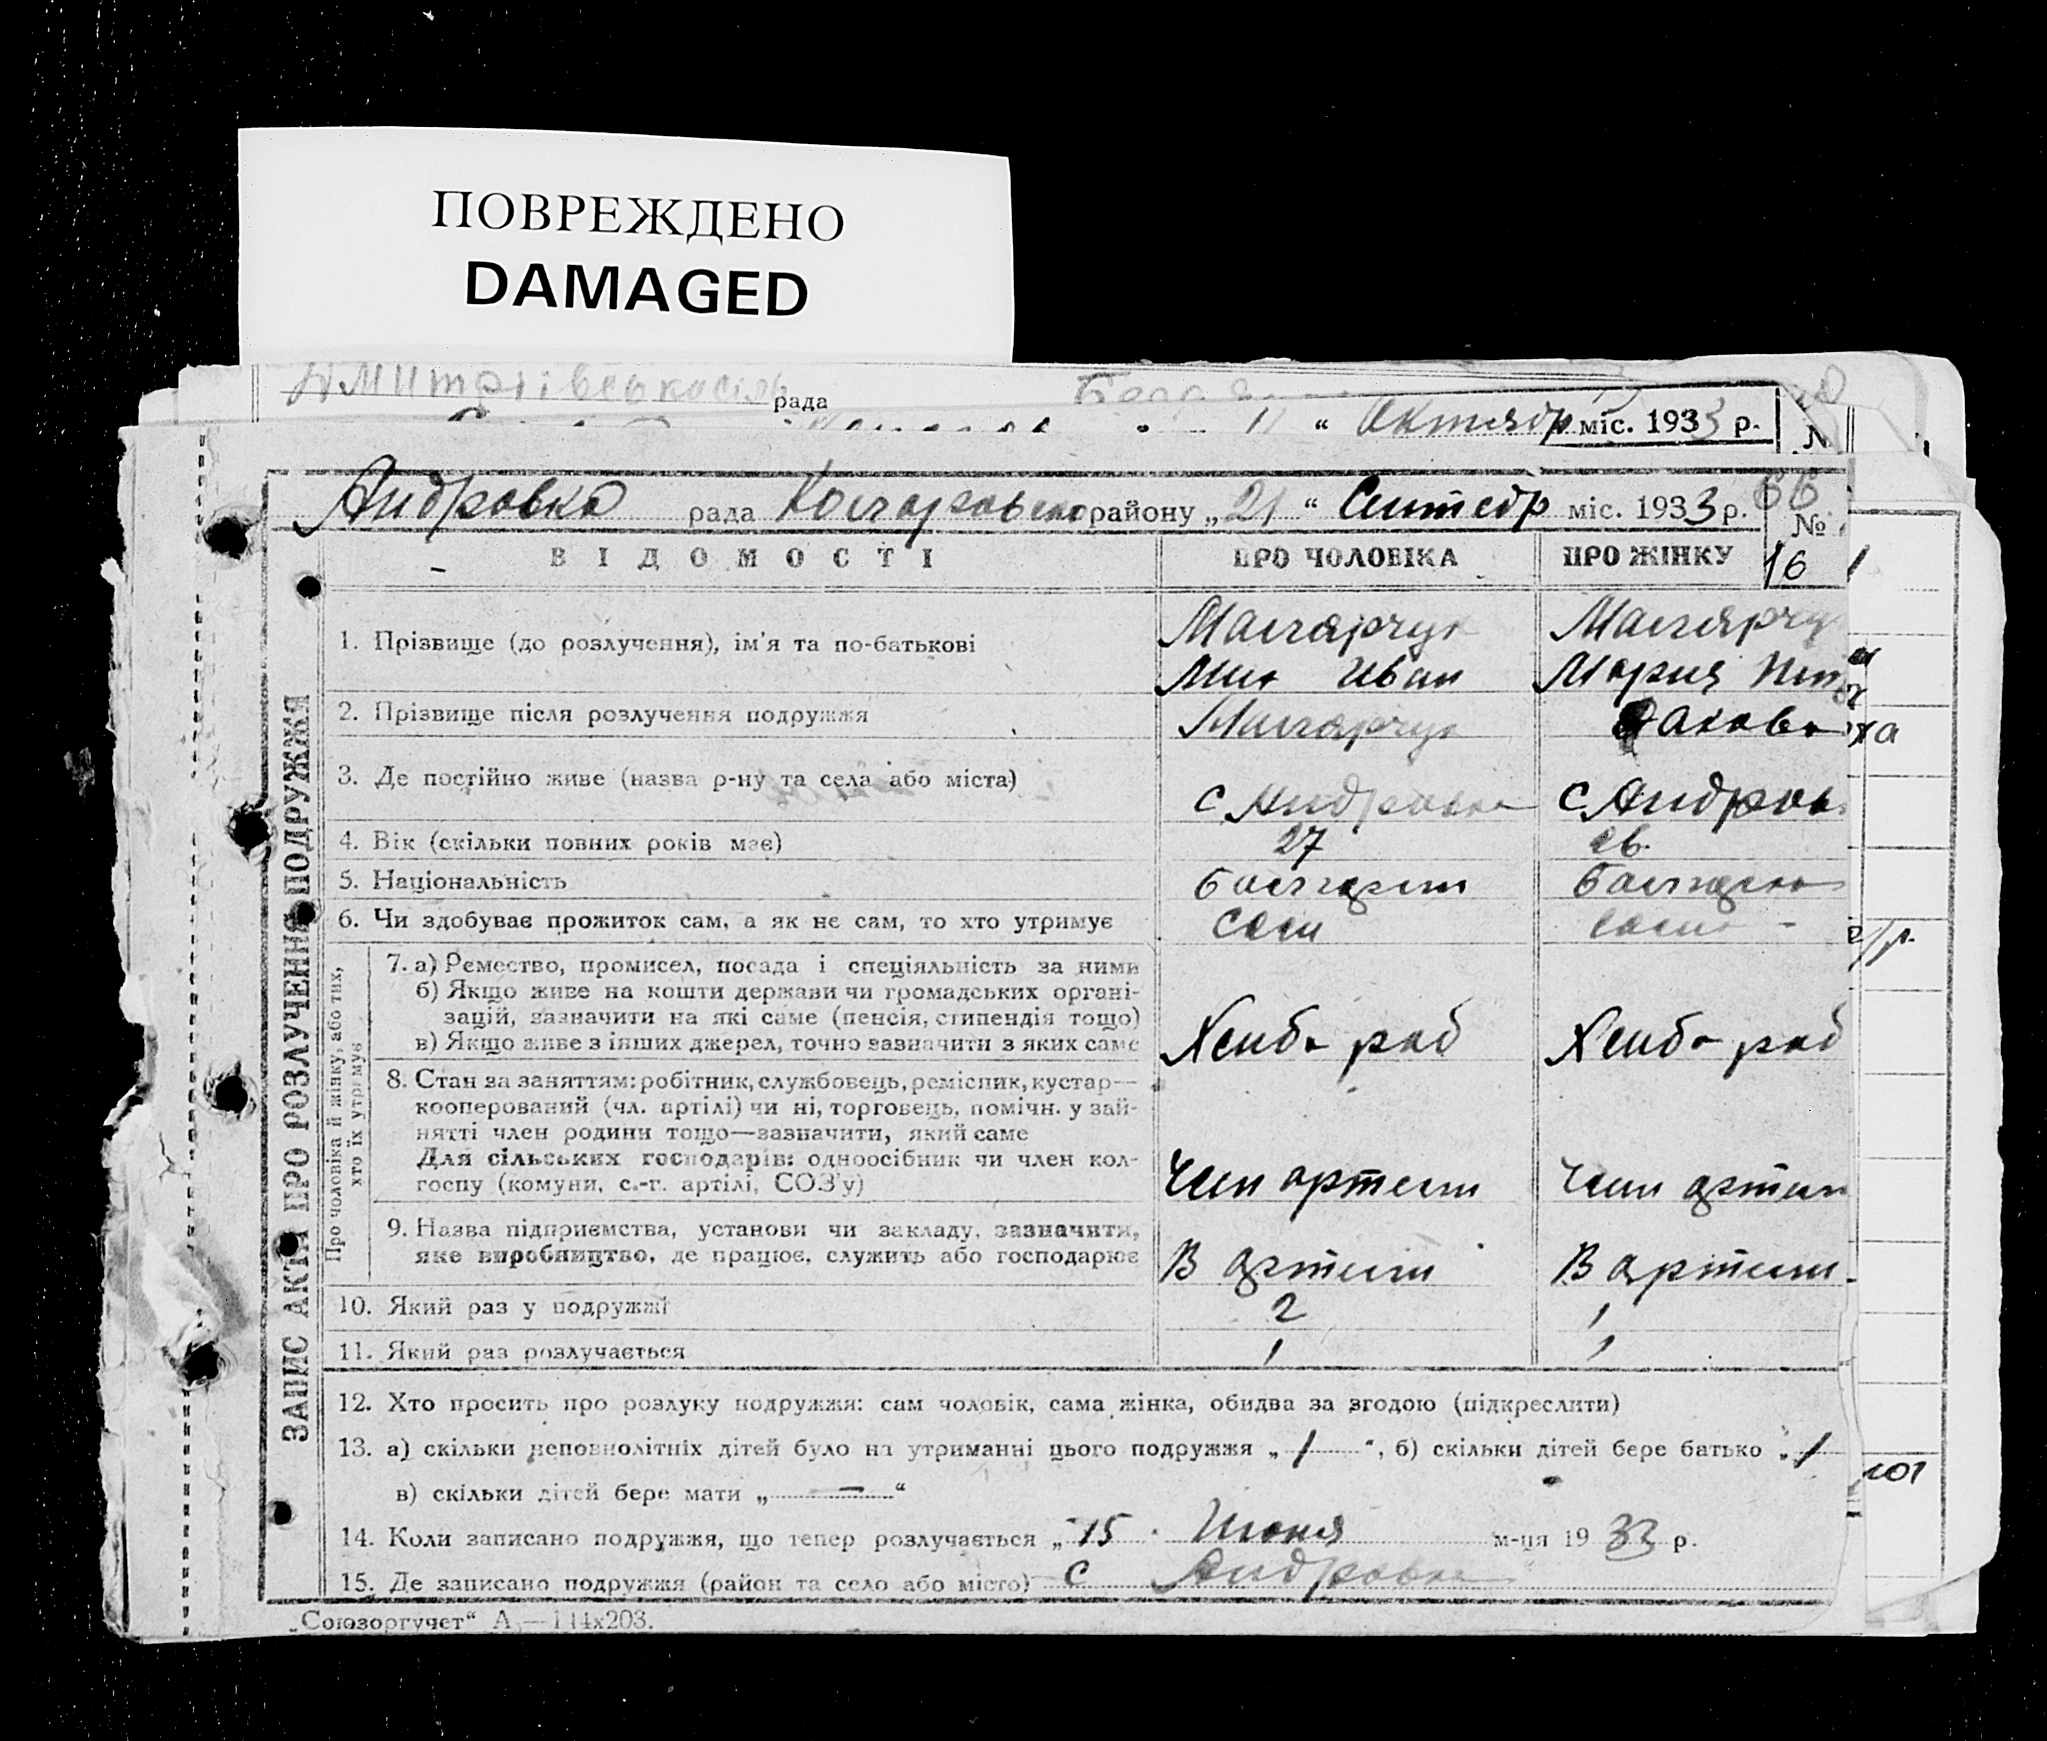 ПОВРЕЖДЕНО
DAMAGED
рада
“ Октябр міс. 1933 р.
Андровка рада району „21“ Сентебр міс. 1933 р. 66
№
16
ВІДОМОСТІ ПРО ЧОЛОВІКА ПРО ЖІНКУ
ЗАПИС АКТА ПРО РОЗЛУЧЕННЯ ПОДРУЖЖЯ
1. Прізвище (до розлучення), ім'я та по-батькові
Иван Мария
2. Прізвище після розлучення подружжя
3. Де постійно живе (назва р-ну та села або міста) с. Андровка с. Андров
4. Вік (скільки повних років має) 27 26.
5. Національність Болгарин Болгарка
6. Чи здобуває прожиток сам, а як не сам, то хто утримує сам сама
Про чоловіка й жінку, або тих, хто їх утримує
7. а) Ремество, промисел, посада і спеціяльність за ними
б) Якщо живе на кошти держави чи громадських органі-
зацій, зазначити на які саме (пенсія, стипендія тощо)
в) Якщо живе з інших джерел, точно зазначити з яких саме Хлебо роб Хлебо роб
8. Стан за заняттям: робітник, службовець, ремісник, кустар—
кооперований (чл. артілі) чи ні, торговець, помічн. у зай-
нятті член родини тощо—зазначити, який саме
Для сільських господарів: одноосібник чи член кол-
госпу (комуни, с.-г. артілі, СОЗ'у) Член артели Член артели
9. Назва підприємства, установи чи закладу, зазначити,
яке виробництво, де працює, служить або господарює В артели В артели
10. Який раз у подружжі 2 1
11. Який раз розлучається 1 1
12. Хто просить про розлуку подружжя: сам чоловік, сама жінка, обидва за згодою (підкреслити)
13. а) скільки неповнолітніх дітей було на утриманні цього подружжя „ 1 “, б) скільки дітей бере батько „ 1
в) скільки дітей бере мати „ — “
14. Коли записано подружжя, що тепер розлучається „ 15 Июня м-ця 19 33 р.
15. Де записано подружжя (район та село або місто) с Андровка
„Союзоргучет“ А.—144х203.